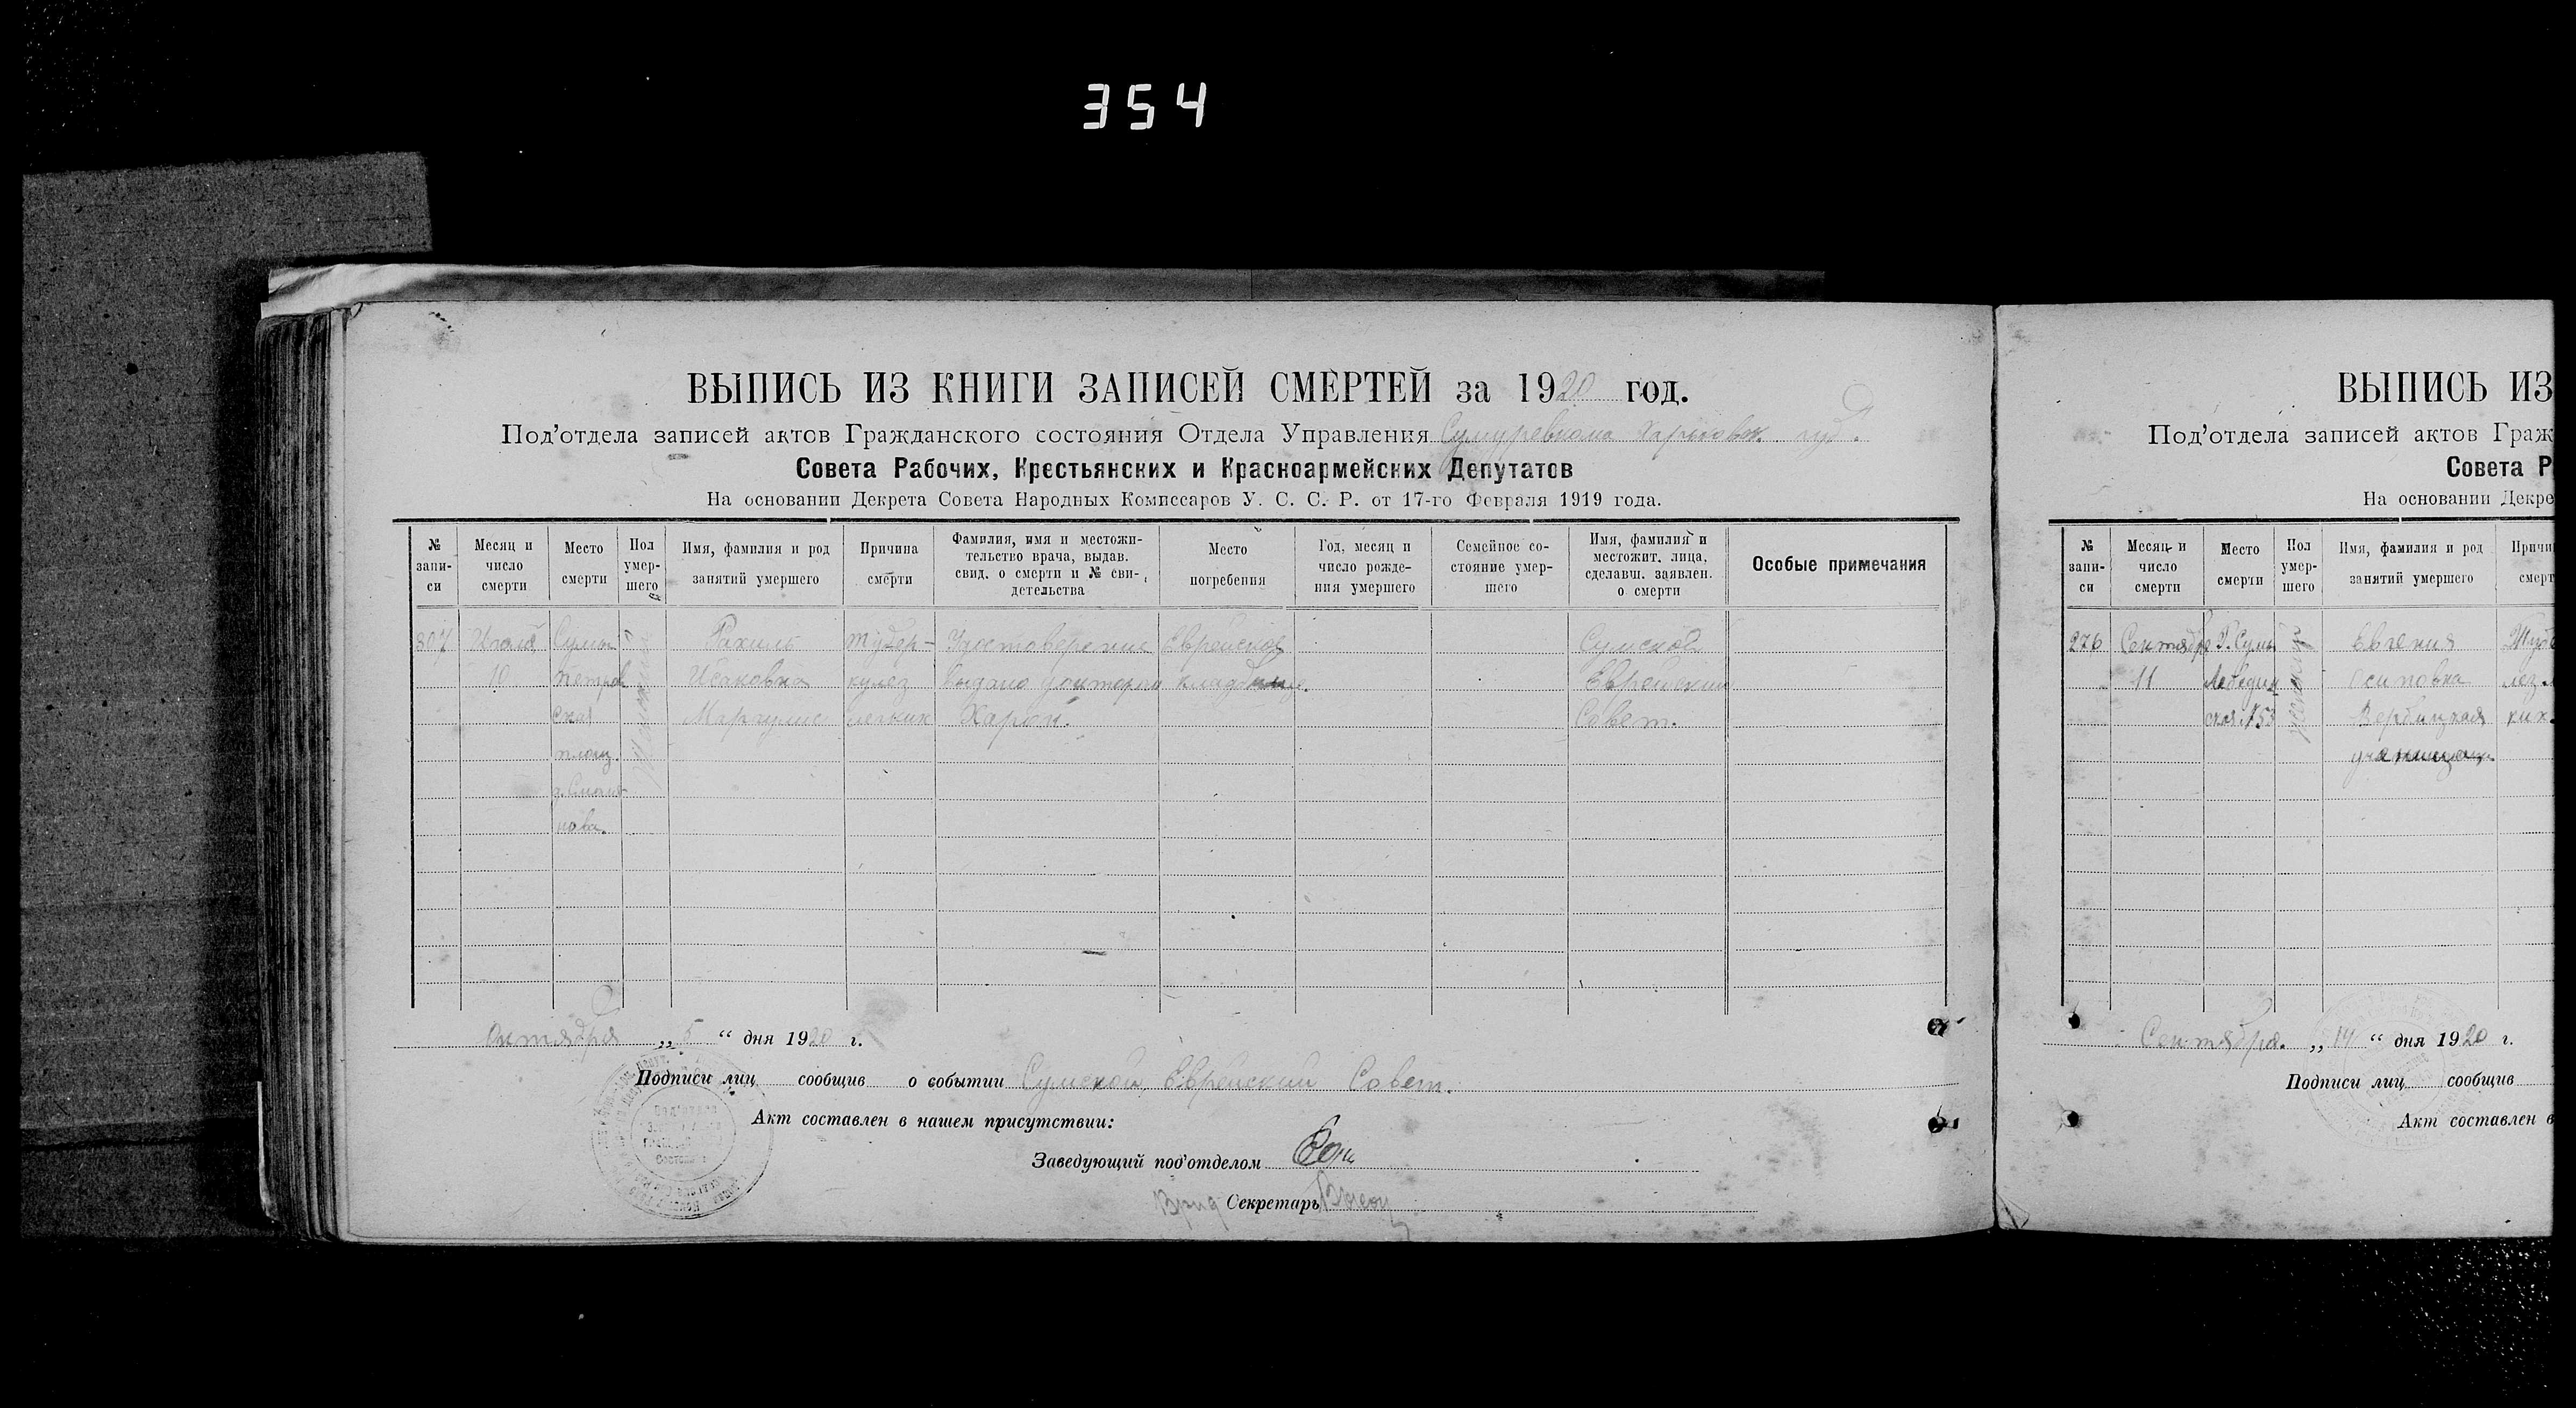 354
ВЫПИСЬ ИЗ КНИГИ ЗАПИСЕЙ СМЕРТЕЙ за 1920 год.
Под’отдела записей актов Гражданского состояния Отдела Управления Сумуревкома Харьковск. губ.
Совета Рабочих, Крестьянских и Красноармейских Депутатов
На основании Декрета Совета Народных Комиссаров У. С. С. Р. от 17-го Февраля 1919 года.
№ запи-си
Месяц и число смерти
Место смерти
Пол умер-шего
Имя, фамилия и род занятий умершего
Причина смерти
Фамилия, имя и местожи-тельство врача, выдав. свид. о смерти и № сви-детельства
Место погребения
Год, месяц и число рожде-ния умершего
Семейное со-стояние умер-шего
Имя, фамилия и местожит. лица, сделавш. заявлен. о смерти
Особые примечания
307 Сумы Рахиль тубер- Удостоверение Еврейское Сумской
10 петров Исаковна кулез выдано доктором кладбище. Еврейский
ская Маргулис легких Харон. Совет.
площ.
нова.
Октября „5“ дня 1920 г.
Подписи лиц сообщив о событии Сумской Еврейский Совет.
Акт составлен в нашем присутствии:
Заведующий под’отделом
Врид Секретарь
ВЫПИСЬ ИЗ
Под’отдела записей актов Граж
Совета Р
На основании Декре
№ запи-си
Месяц и число смерти
Место смерти
Пол умер-шего
Имя, фамилия и род занятий умершего
Причи смерт
276 Сентября Г. Сумы Евгения Тубе
11 Лебедин Осиповна лез л
ская №53 Вербицкая ких.
Сентября. „14“ дня 1920 г.
Подписи лиц сообщив
Акт составлен в